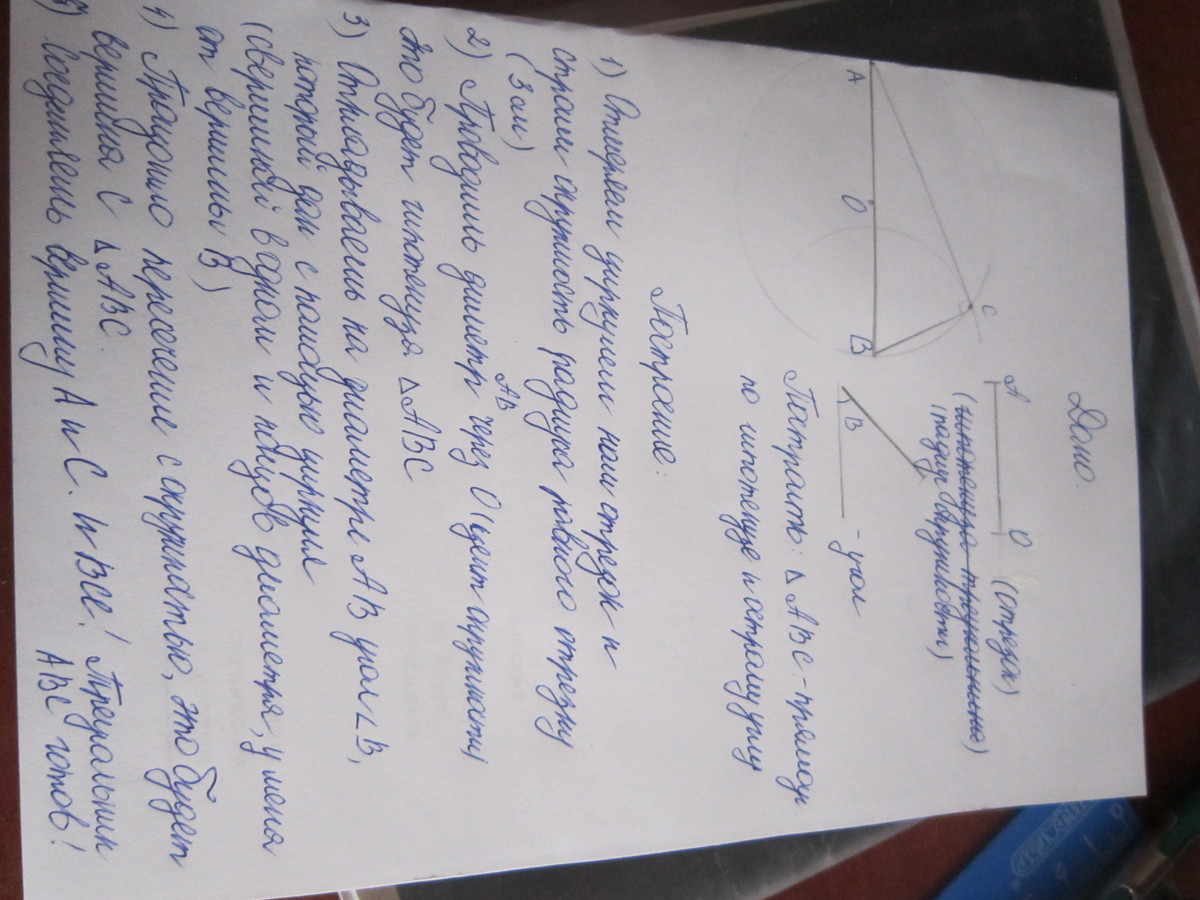 Дано.
А О (отрезок)
(гипотенуза треугольника)
(радиус окружности)
В - угол
Построить: △ АВС - прямоуг.
по гипотенузе и острому углу
А О В С
Построение:
1) Отмеряем циркулем наш отрезок и
строим окружность радиуса равного отрезку
(3 см)
2) Проводишь диаметр АВ через О (цент окружности)
это будет гипотенуза △ АВС
3) Откладываешь на диаметре АВ угол ∠ В,
который дан с помощью циркуля
(с вершиной в одном и концов диаметра, у меня
от вершины В)
4) Продлишь пересечение с окружностью, это будет
вершина С △ АВС.
5) Соединяешь вершину А и С. И ВСЕ! Треугольник
АВС готов!